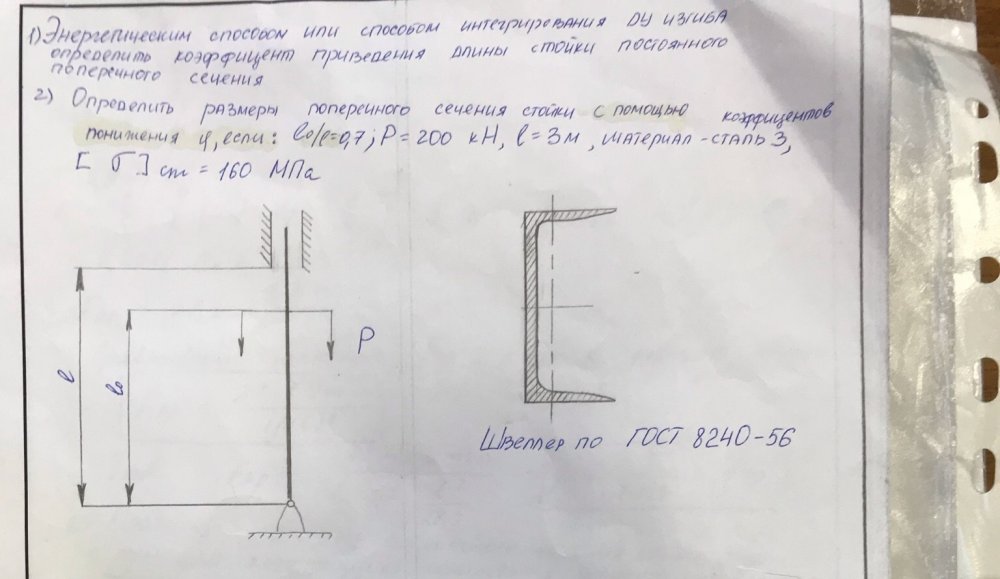 1) Энергетическим способом или способом интегрирования ДУ изгиба
определить коэффицент приведения длины стойки постоянного
поперечного сечения
2) Определить размеры поперечного сечения стойки с помощью коэффицентов
понижения φ, если: l₀/l=0,7; P=200 кН, l=3м, материал-сталь 3,
[σ]ст = 160 МПа
P
l
l₀
Швеллер по ГОСТ 8240-56